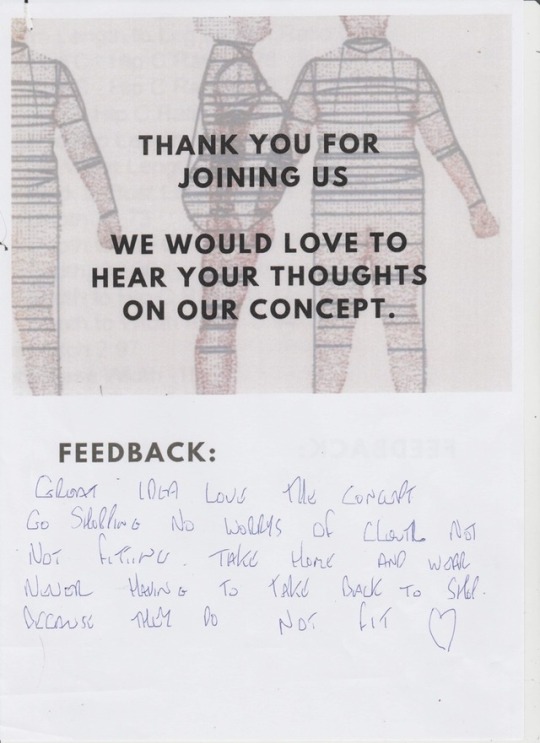 THANK YOU FOR
JOINING US
WE WOULD LOVE TO
HEAR YOUR THOUGHTS
ON OUR CONCEPT.
FEEDBACK:
GREAT IDEA LOVE THE CONCEPT
GO SHOPPING NO WORRYS OF CLOTHS NOT
NOT FITTING. TAKE HOME AND WEAR
NEVER HAVING TO TAKE BACK TO SHOP.
BECAUSE THEY DO NOT FIT ♡